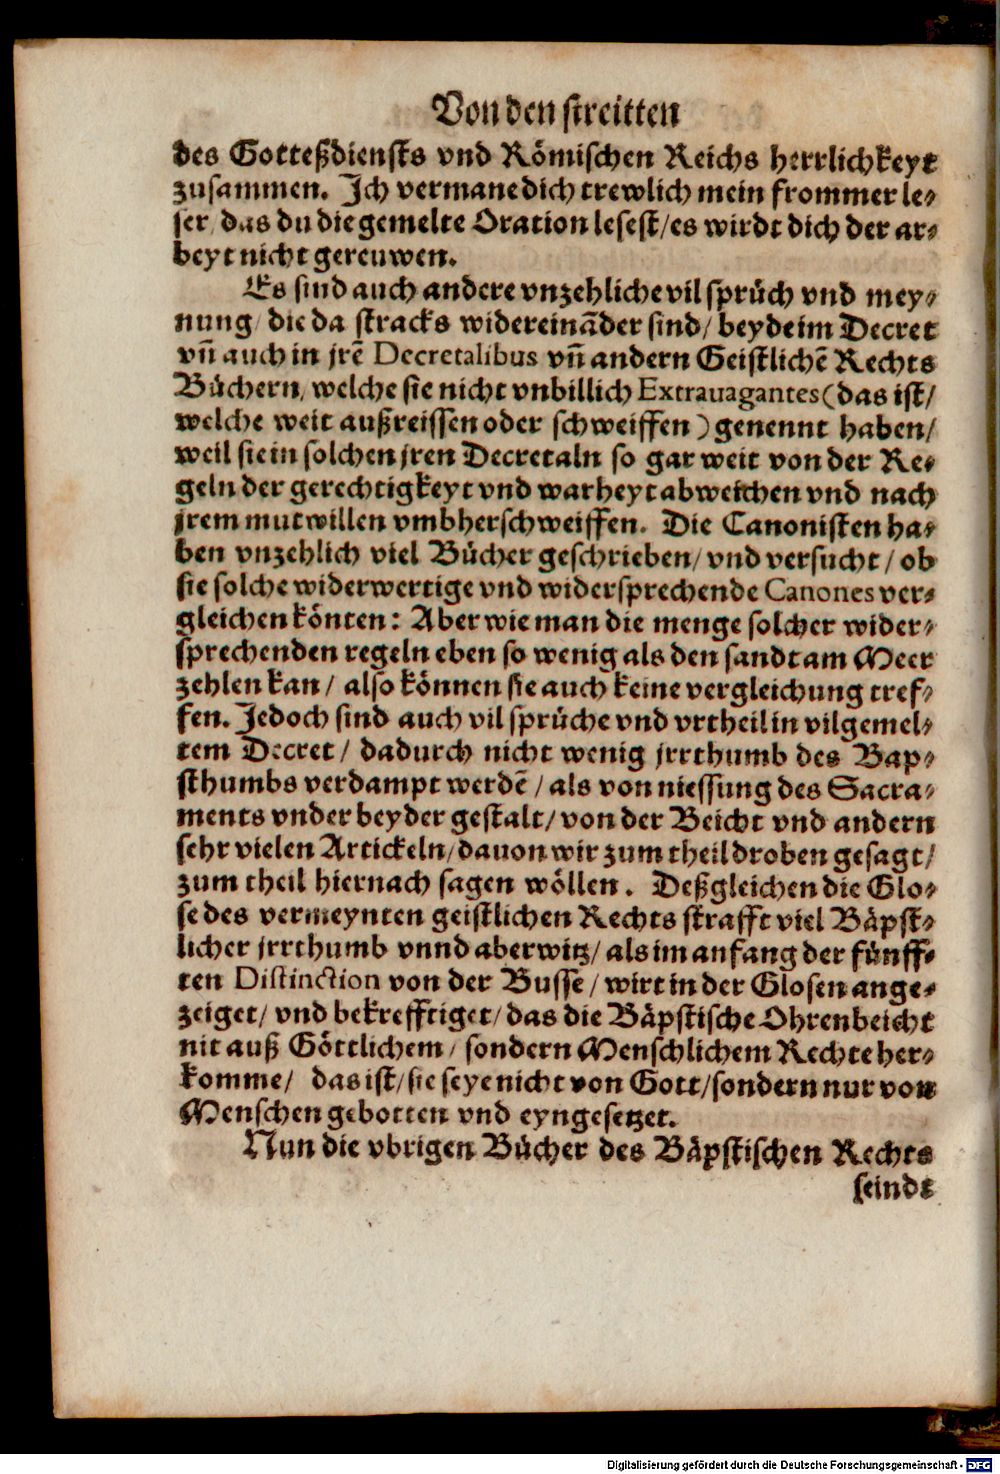 Von den streitten
des Gotteßdiensts vnd Römischen Reichs herrlichkeyt
zusammen. Ich vermane dich trewlich mein frommer le⸗
ser/ das du die gemelte Oration lesest/ es wirdt dich der ar⸗
beyt nicht gereuwen.
Es sind auch andere vnzehliche vil sprüch vnd mey⸗
nung/ die da stracks widereinãder sind/ beyde im Decret
vñ auch in jrẽ Decretalibus vñ andern Geistlichẽ Rechts
Büchern/ welche sie nicht vnbillich Extrauagantes (das ist/
welche weit außreissen oder schweiffen) genennt haben/
weil sie in solchen jren Decretaln so gar weit von der Re⸗
geln der gerechtigkeyt vnd warheyt abweichen vnd nach
jrem mutwillen vmbherschweiffen. Die Canonisten ha⸗
ben vnzehlich viel Bücher geschrieben/ vnd versucht/ ob
sie solche widerwertige vnd widersprechende Canones ver⸗
gleichen könten: Aber wie man die menge solcher wider⸗
sprechenden regeln eben so wenig als den sandt am Meer
zehlen kan/ also können sie auch keine vergleichung tref⸗
fen. Jedoch sind auch vil sprüche vnd vrtheil in vilgemel⸗
tem Decret/ dadurch nicht wenig jrrthumb des Bap⸗
sthumbs verdampt werdẽ/ als von niessung des Sacra⸗
ments vnder beyder gestalt/ von der Beicht vnd andern
sehr vielen Artickeln/ dauon wir zum theil droben gesagt/
zum theil hiernach sagen wöllen. Deßgleichen die Glo⸗
se des vermeynten geistlichen Rechts strafft viel Bäpst⸗
licher jrrthumb vnnd aberwitz/ als im anfang der fünff⸗
ten Distinction von der Busse/ wirt in der Glosen ange⸗
zeiget/ vnd bekrefftiget/ das die Bäpstische Ohrenbeicht
nit auß Göttlichem/ sondern Menschlichem Rechte her⸗
komme/ das ist/ sie seye nicht von Gott/ sondern nur von
Menschen gebotten vnd eyngesetzet.
Nun die vbrigen Bücher des Bäpstischen Rechts
seindt
Digitalisierung gefördert durch die Deutsche Forschungsgemeinschaft - DFG